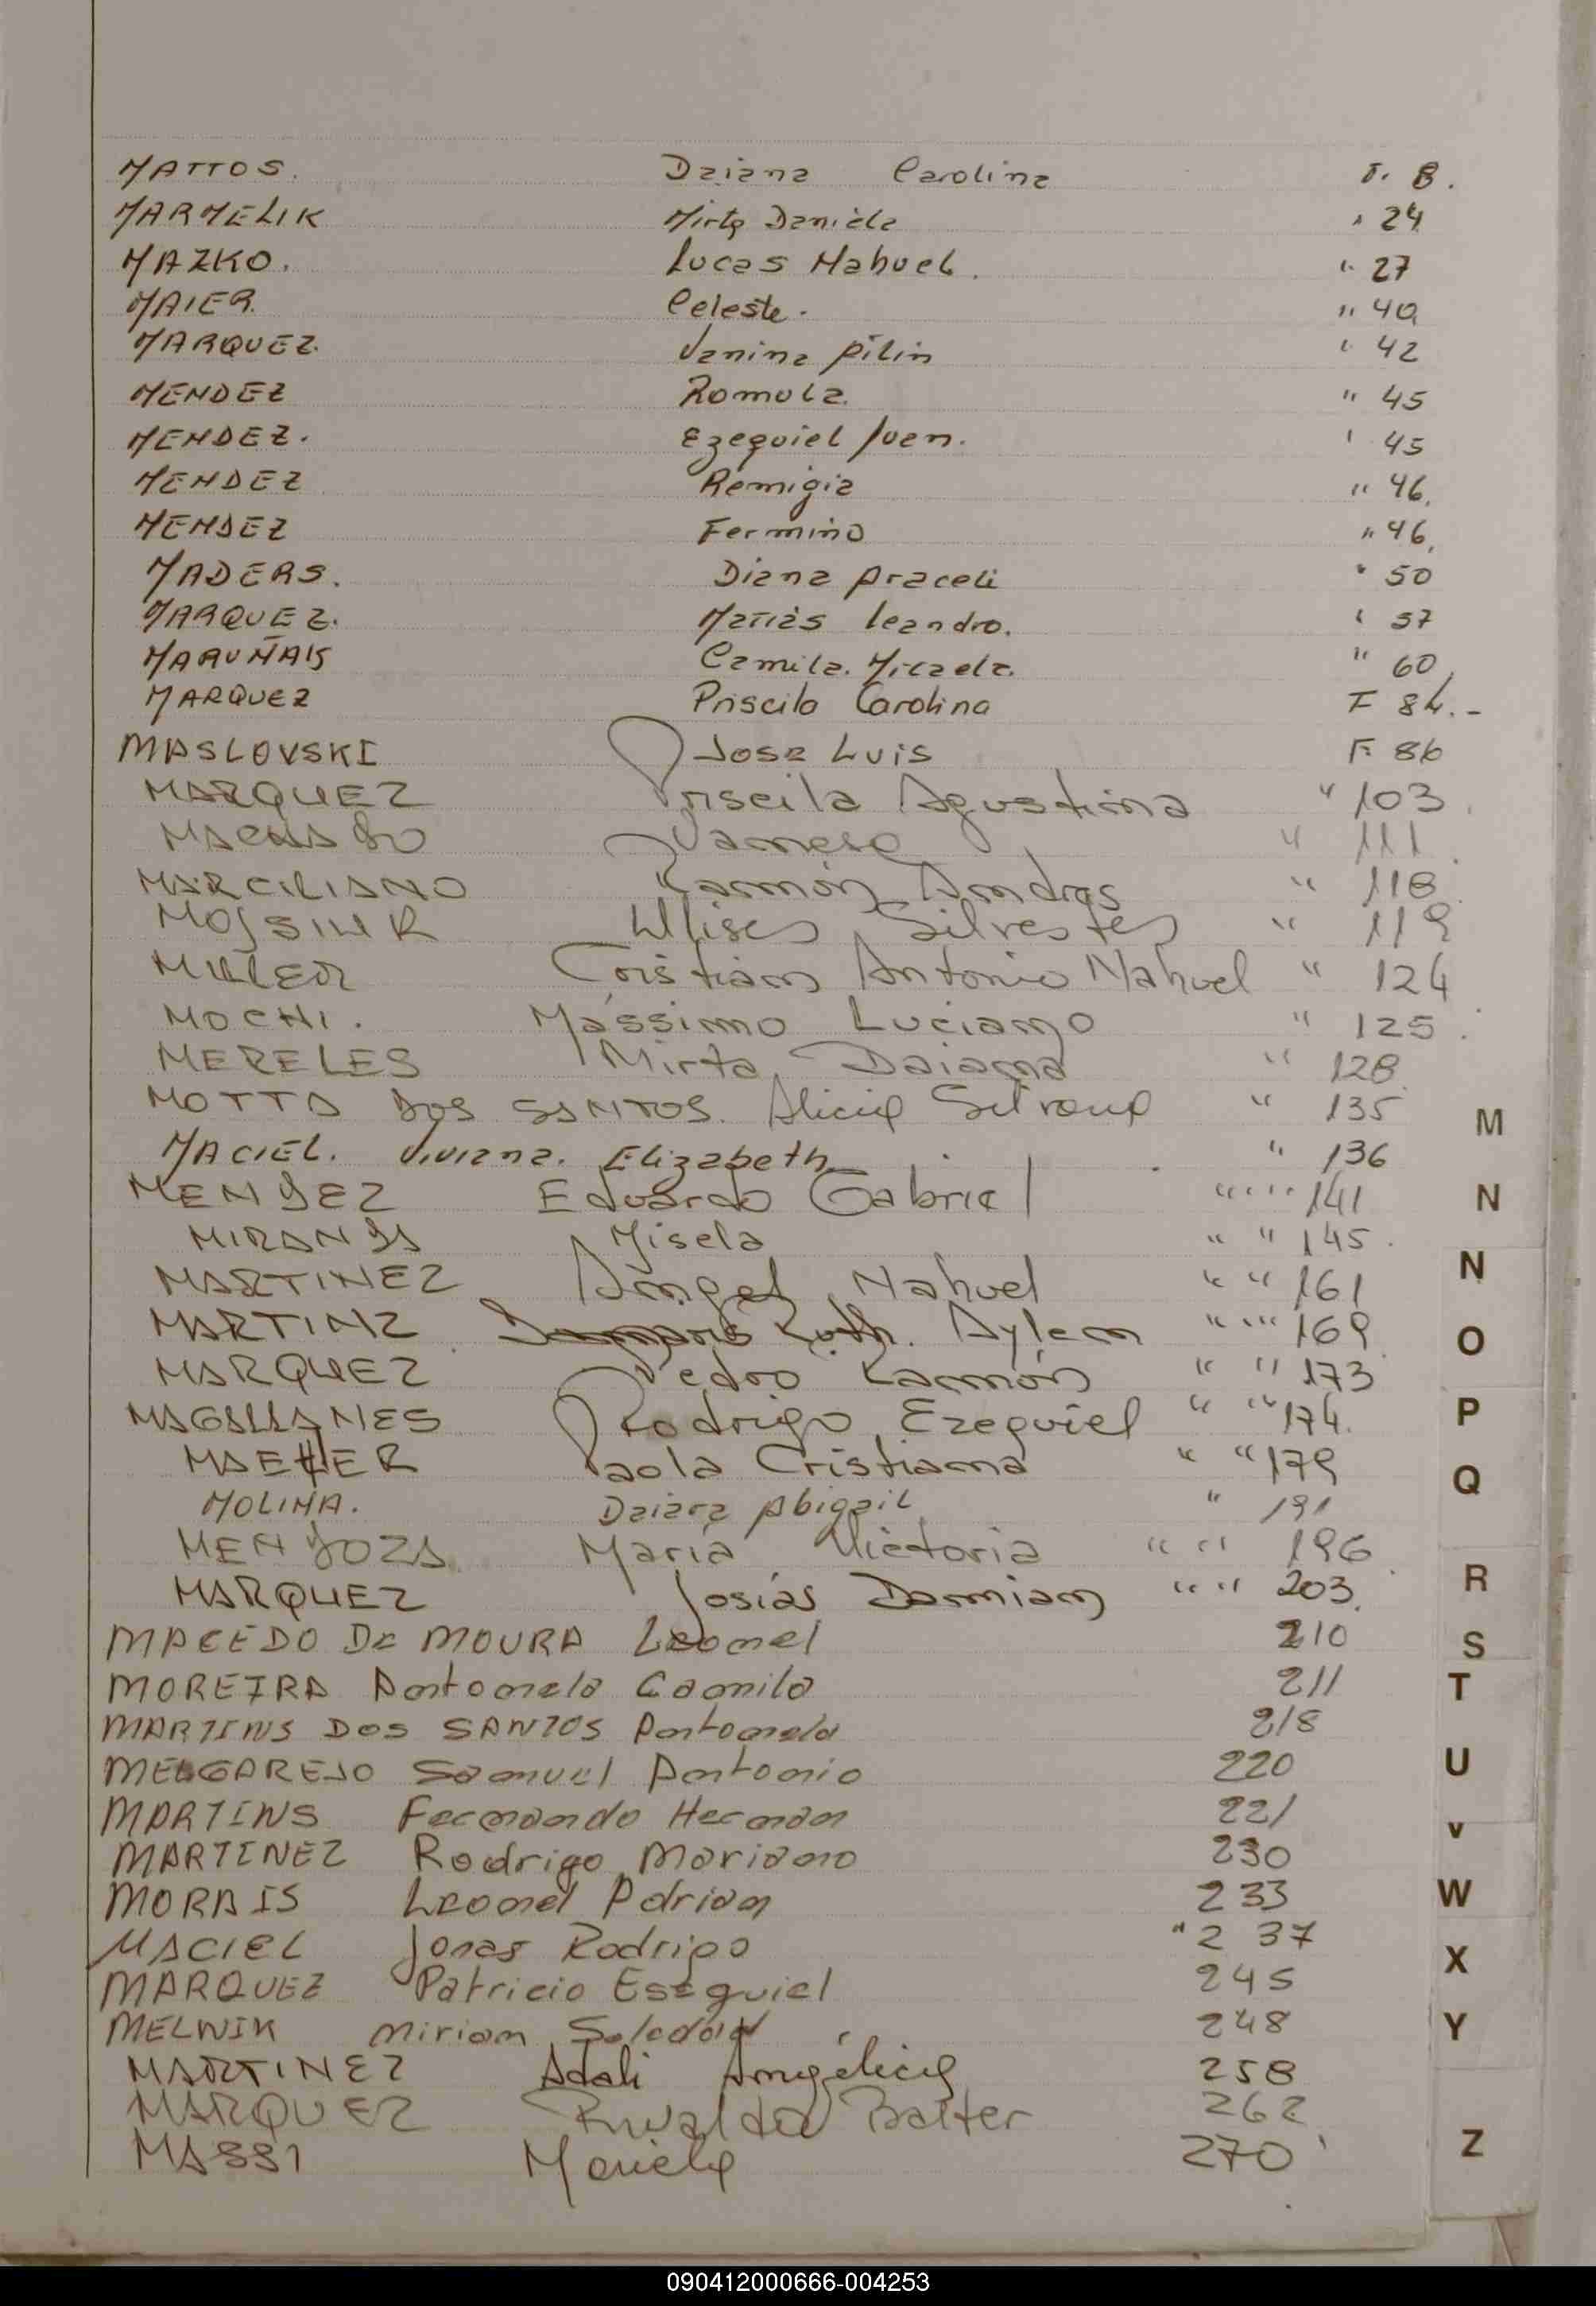 MATTOS. Daiana Carolina F. 8.
MARMELIK Mirta Daniela " 24
MAZKO. Lucas Nahuel. " 27
MAIER. Celeste. " 40
MARQUEZ. Janina Pilin " 42
MENDEZ Romula. " 45
MENDEZ. Ezequiel Juan. " 45
MENDEZ Remigia " 46.
MENDEZ Fermino " 46.
MADERS. Diana Araceli " 50
MARQUEZ. Matias Leandro. " 57
Camila. Micaela. " 60
MARQUEZ Priscila Carolina F 84.-
MASLOVSKI Jose Luis F 86
MARQUEZ Priscila Agustina " 103
MACHADO Vanesa " 111
MARCILIANO Ramón Andres " 118
Ulises Silvestes " 119
MULLER Cristian Antonio Nahuel " 124
MOCHI. Mássimo Luciano " 125
MERELES Mirta Daiana " 128
MOTTA DOS SANTOS. Alicia Silvana " 135
MACIEL. Viviana. Elizabeth " 136
MENDEZ Eduardo Gabriel " " 141
MIRANDA Misela " " 145
MARTINEZ Angel Nahuel " " 161
MARTINZ Ruth. Aylen " " 169
MARQUEZ Pedro Ramón " " 173
MAGALLANES Rodrigo Ezequiel " " 174.
Paola Cristiana " " 179
MOLINA. Daiara Abigail " 191
MENDOZA María Victoria " " 196
MARQUEZ Josías Damian " " 203.
MACEDO De MOURA Leonel 210
MOREIRA Antonela Camila 211
MARTINS DOS SANTOS Antonela 218
MELGAREJO Samuel Antonio 220
MARTINS Fernando Hernan 221
MARTINEZ Rodrigo Mariano 230
MORAIS Leonel Adrian 233
MACIEL Jonas Rodrigo " 237
MARQUEZ Patricio Esequiel 245
MELNIK Miriam Soledad 248
MARTINEZ Adali Angélica 258
MARQUEZ Rivaldo Balter 262
MASSI Mariela 270
M
N
N
O
P
Q
R
S
T
U
V
W
X
Y
Z
090412000666-004253